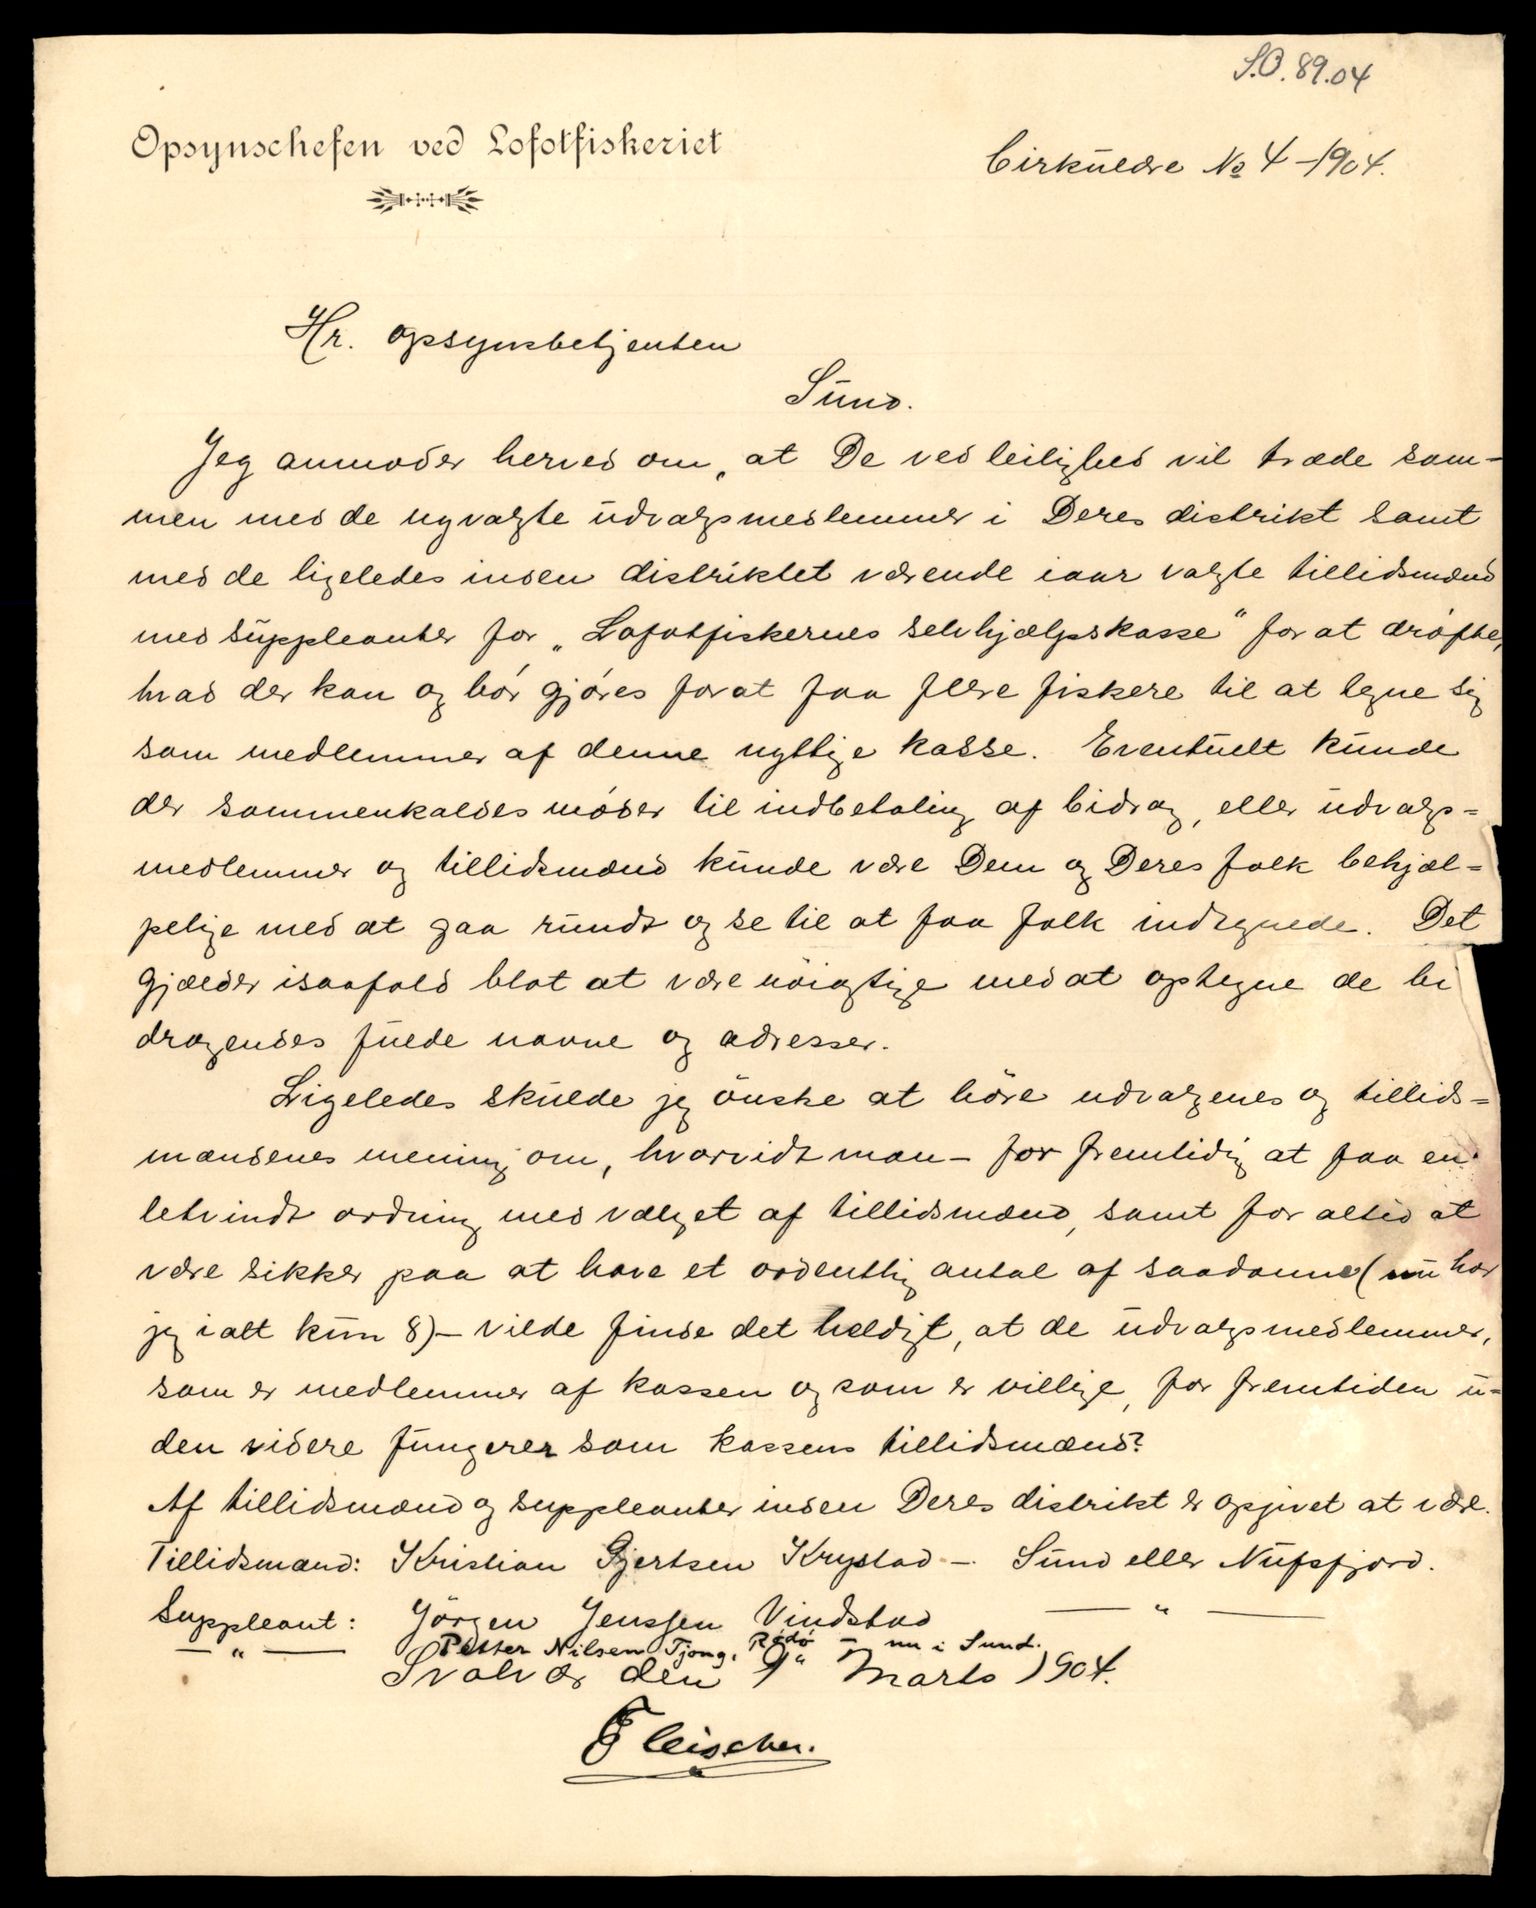 S.O. 89.04
Opsynschefen ved Lofotfiskeriet
Cirkulære No 4 - 1904.
Hr. opsynsbetjenten
Sund.
Jeg anmoder herved om, at De ved leilighed vil træde sam-
men med de nyvalgte udvalgsmedlemmer i Deres distrikt samt
med de ligeledes inden distriktet værende iaar valgte tillidsmænd
med suppleanter for „Lofotfiskernes selvhjælpskasse" for at drøfte,
hvad der kan og bør gjøres forat faa flere fiskere til at tegne sig
som medlemmer af denne nyttige kasse. Eventuelt kunde
der sammenkaldes møder til indbetaling af bidrag, eller udvalgs=
medlemmer og tillidsmænd kunde være Dem og Deres folk behjæl=
pelige med at gaa rundt og se til at faa folk indtegnede. Det
gjælder isaafald blot at være nøiagtige med at optegne de bi
dragendes fulde navne og adresser.
Ligeledes skulde jeg ønske at høre udvalgenes og tillids=
mændenes mening om, hvorvidt man - for fremtidig at faa en
letvindt ordning med valget af tillidsmænd, samt for altid at
være sikker paa at have et ordentlig antal af saadanne (nu har
jeg ialt kun 8) - vilde finde det heldigt, at de udvalgsmedlemmer,
som er medlemmer af kassen og som er villige, for fremtiden u=
den videre fungerer som kassens tillidsmænd?
Af tillidsmænd og suppleanter inden Deres distrikt er opgivet at være.
Tillidsmand: Kristian Gjertsen Krystad - Sund eller Nufsfjord.
Suppleant: Jörgen Jenssen Vindstad — " —
— " — Petter Nilsen Tjong, Rødø - nu i Sund.
Svolvær den 9" Marts 1904.
Fleischer.